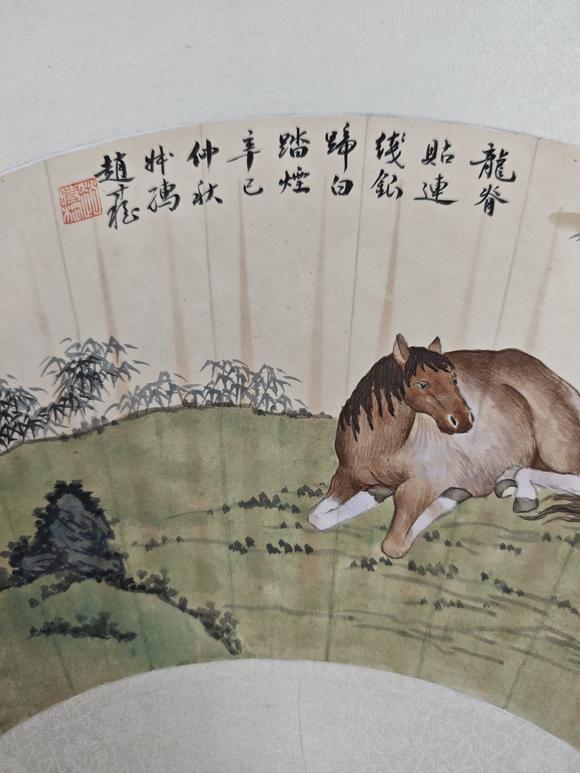 龍脊
貼連
錢銀
蹄白
踏煙
辛巳
仲秋
叔孺
趙